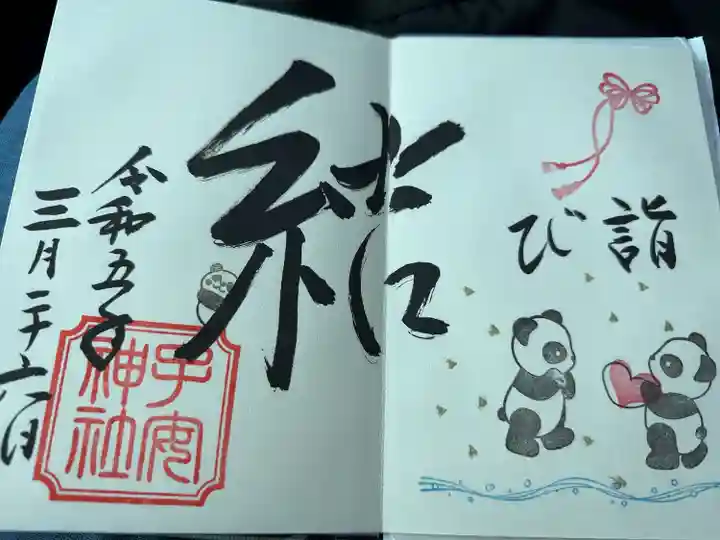 詣び
結
令和五年
三月二十六日
子安
神社